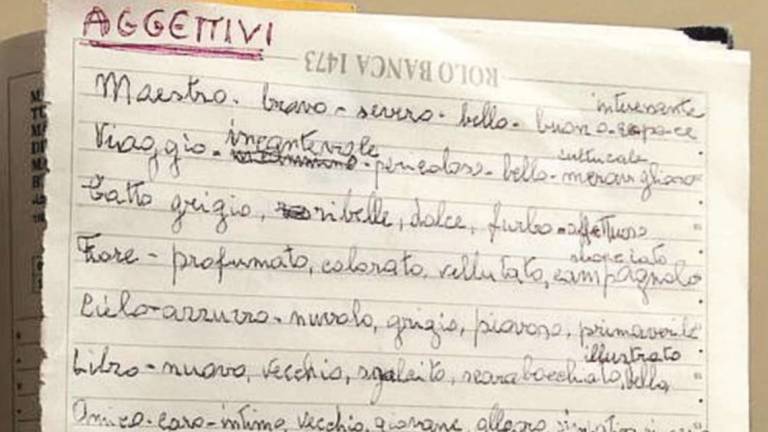 AGGETTIVI
ROLO BANCA 1473
Maestro. bravo - severo - bello - buono - capace
interessante
Viaggio - incantevole - pericoloso - bello - meraviglioso
culturale
Gatto grigio, ribelle, dolce, furbo - affettuoso
Fiore - profumato, colorato, vellutato, campagnolo
Cielo - azzurro - nuvolo, grigio, piovoso, primaverile
Libro - nuovo, vecchio, sgualcito, scarabocchiato, bello
illustrato
Amico - caro - intimo, vecchio, giovane, allegro